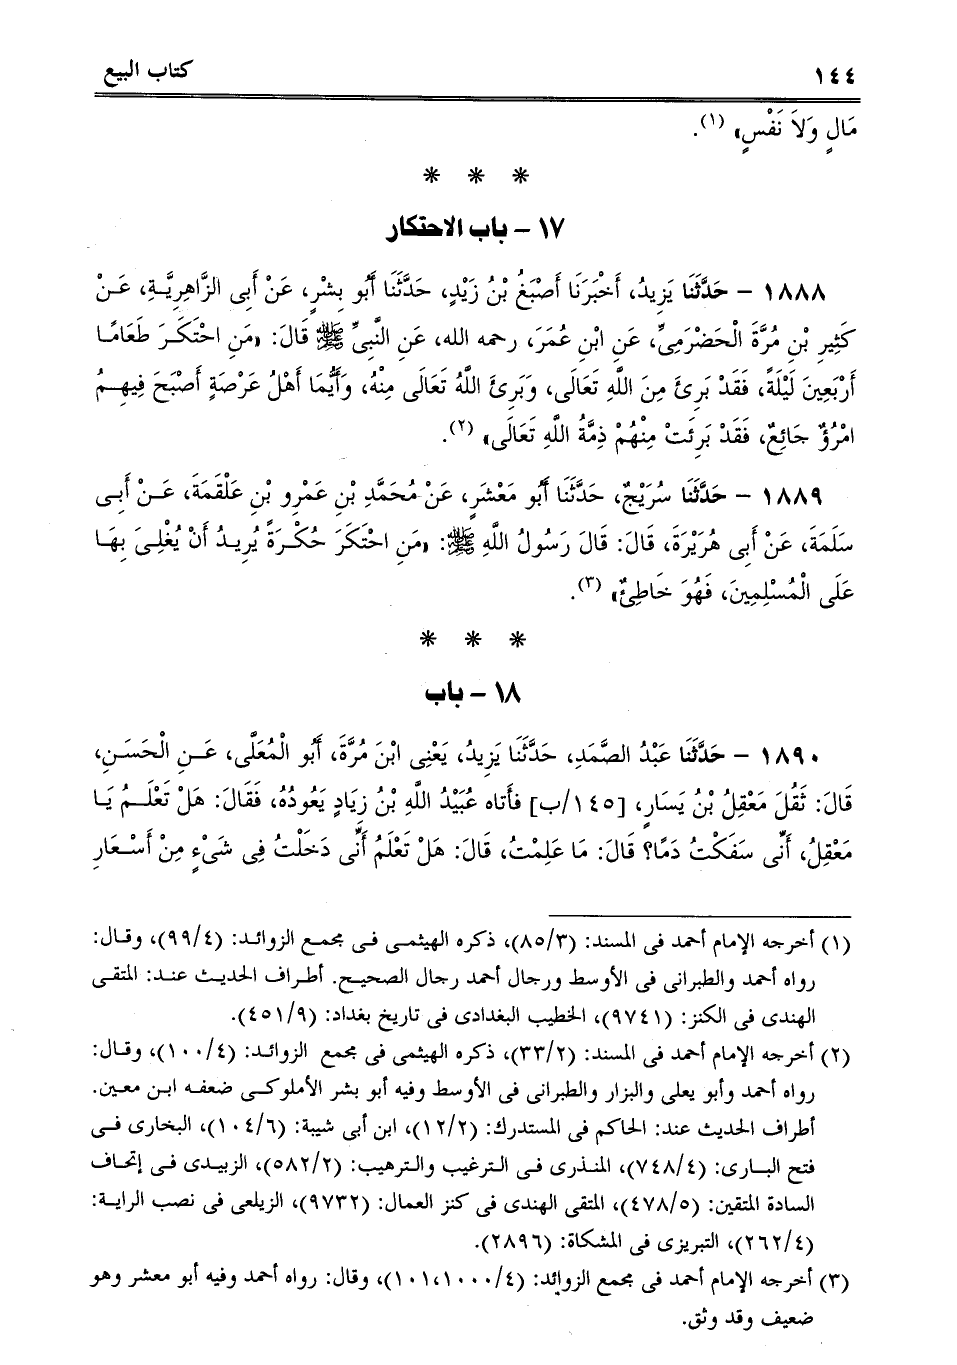 ١٤٤ كتاب البيع
مَالٍ وَلَا نَفْسٍ» (١).
* * *
١٧ - باب الاحتكار
١٨٨٨ - حَدَّثَنَا يَزِيدُ، أَخْبَرَنَا أَصْبَغُ بْنُ زَيْدٍ، حَدَّثَنَا أَبُو بِشْرٍ، عَنْ أَبِى الزَّاهِرِيَّةِ، عَنْ
كَثِيرِ بْنِ مُرَّةَ الْحَضْرَمِىِّ، عَنِ ابْنِ عُمَرَ، رحمه الله، عَنِ النَّبِىِّ ﷺ قَالَ: «مَنِ احْتَكَرَ طَعَامًا
أَرْبَعِينَ لَيْلَةً، فَقَدْ بَرِئَ مِنَ اللَّهِ تَعَالَى، وَبَرِئَ اللَّهُ تَعَالَى مِنْهُ، وَأَيُّمَا أَهْلُ عَرْصَةٍ أَصْبَحَ فِيهِمُ
امْرُؤٌ جَائِعٌ، فَقَدْ بَرِئَتْ مِنْهُمْ ذِمَّةُ اللَّهِ تَعَالَى» (٢).
١٨٨٩ - حَدَّثَنَا سُرَيْجٌ، حَدَّثَنَا أَبُو مَعْشَرٍ، عَنْ مُحَمَّدِ بْنِ عَمْرِو بْنِ عَلْقَمَةَ، عَنْ أَبِى
سَلَمَةَ، عَنْ أَبِى هُرَيْرَةَ، قَالَ: قَالَ رَسُولُ اللَّهِ ﷺ: «مَنِ احْتَكَرَ حُكْرَةً يُرِيدُ أَنْ يُغْلِىَ بِهَا
عَلَى الْمُسْلِمِينَ، فَهُوَ خَاطِئٌ» (٣).
* * *
١٨ - باب
١٨٩٠ - حَدَّثَنَا عَبْدُ الصَّمَدِ، حَدَّثَنَا يَزِيدُ، يَعْنِى ابْنَ مُرَّةَ، أَبُو الْمُعَلَّى، عَنِ الْحَسَنِ،
قَالَ: ثَقُلَ مَعْقِلُ بْنُ يَسَارٍ، [١٤٥/ب] فَأَتاه عُبَيْدُ اللَّهِ بْنُ زِيَادٍ يَعُودُهُ، فَقَالَ: هَلْ تَعْلَمُ يَا
مَعْقِلُ، أَنِّى سَفَكْتُ دَمًا؟ قَالَ: مَا عَلِمْتُ، قَالَ: هَلْ تَعْلَمُ أَنِّى دَخَلْتُ فِى شَىْءٍ مِنْ أَسْعَارِ
(١) أخرجه الإمام أحمد فى المسند: (٨٥/٣)، ذكره الهيثمى فى مجمع الزوائد: (٩٩/٤)، وقال:
رواه أحمد والطبرانى فى الأوسط ورجال أحمد رجال الصحيح. أطراف الحديث عند: المتقى
الهندى فى الكنز: (٩٧٤١)، الخطيب البغدادى فى تاريخ بغداد: (٤٥١/٩).
(٢) أخرجه الإمام أحمد فى المسند: (٣٣/٢)، ذكره الهيثمى فى مجمع الزوائد: (١٠٠/٤)، وقال:
رواه أحمد وأبو يعلى والبزار والطبرانى فى الأوسط وفيه أبو بشر الأملوكى ضعفه ابن معين.
أطراف الحديث عند: الحاكم فى المستدرك: (١٢/٢)، ابن أبى شيبة: (١٠٤/٦)، البخارى فى
فتح البارى: (٧٤٨/٤)، المنذرى فى الترغيب والترهيب: (٥٨٢/٢)، الزبيدى فى إتحاف
السادة المتقين: (٤٧٨/٥)، المتقى الهندى فى كنز العمال: (٩٧٣٢)، الزيلعى فى نصب الراية:
(٢٦٢/٤)، التبريزى فى المشكاة: (٢٨٩٦).
(٣) أخرجه الإمام أحمد فى مجمع الزوائد: (١٠١،١٠٠٠/٤)، وقال: رواه أحمد وفيه أبو معشر وهو
ضعيف وقد وثق.